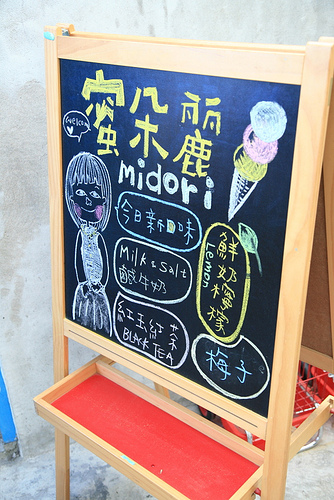 蜜朵麗
midori
welcome
今日新口味
Milk & Salt
鹹牛奶
紅玉紅茶
BLACK TEA
鮮奶檸檬
Lemon
梅子